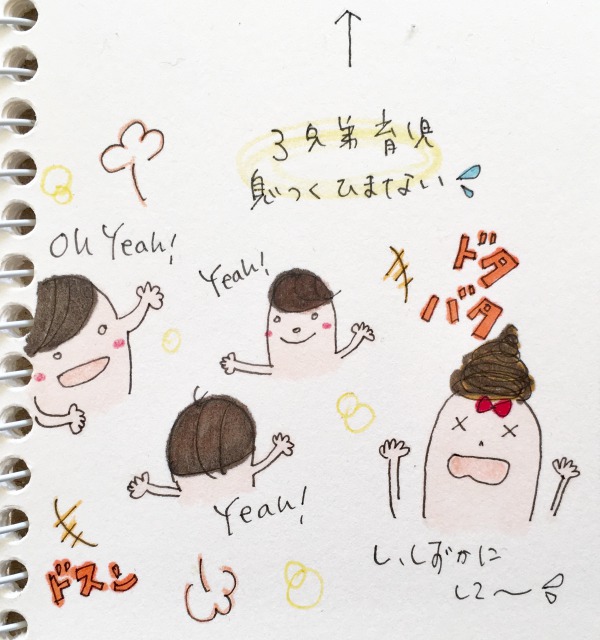 3兄弟育児
息つくひまなない
Oh Yeah!
Yeah!
ドタ
バタ
Yeah!
ドスン
し、しずかに
して〜